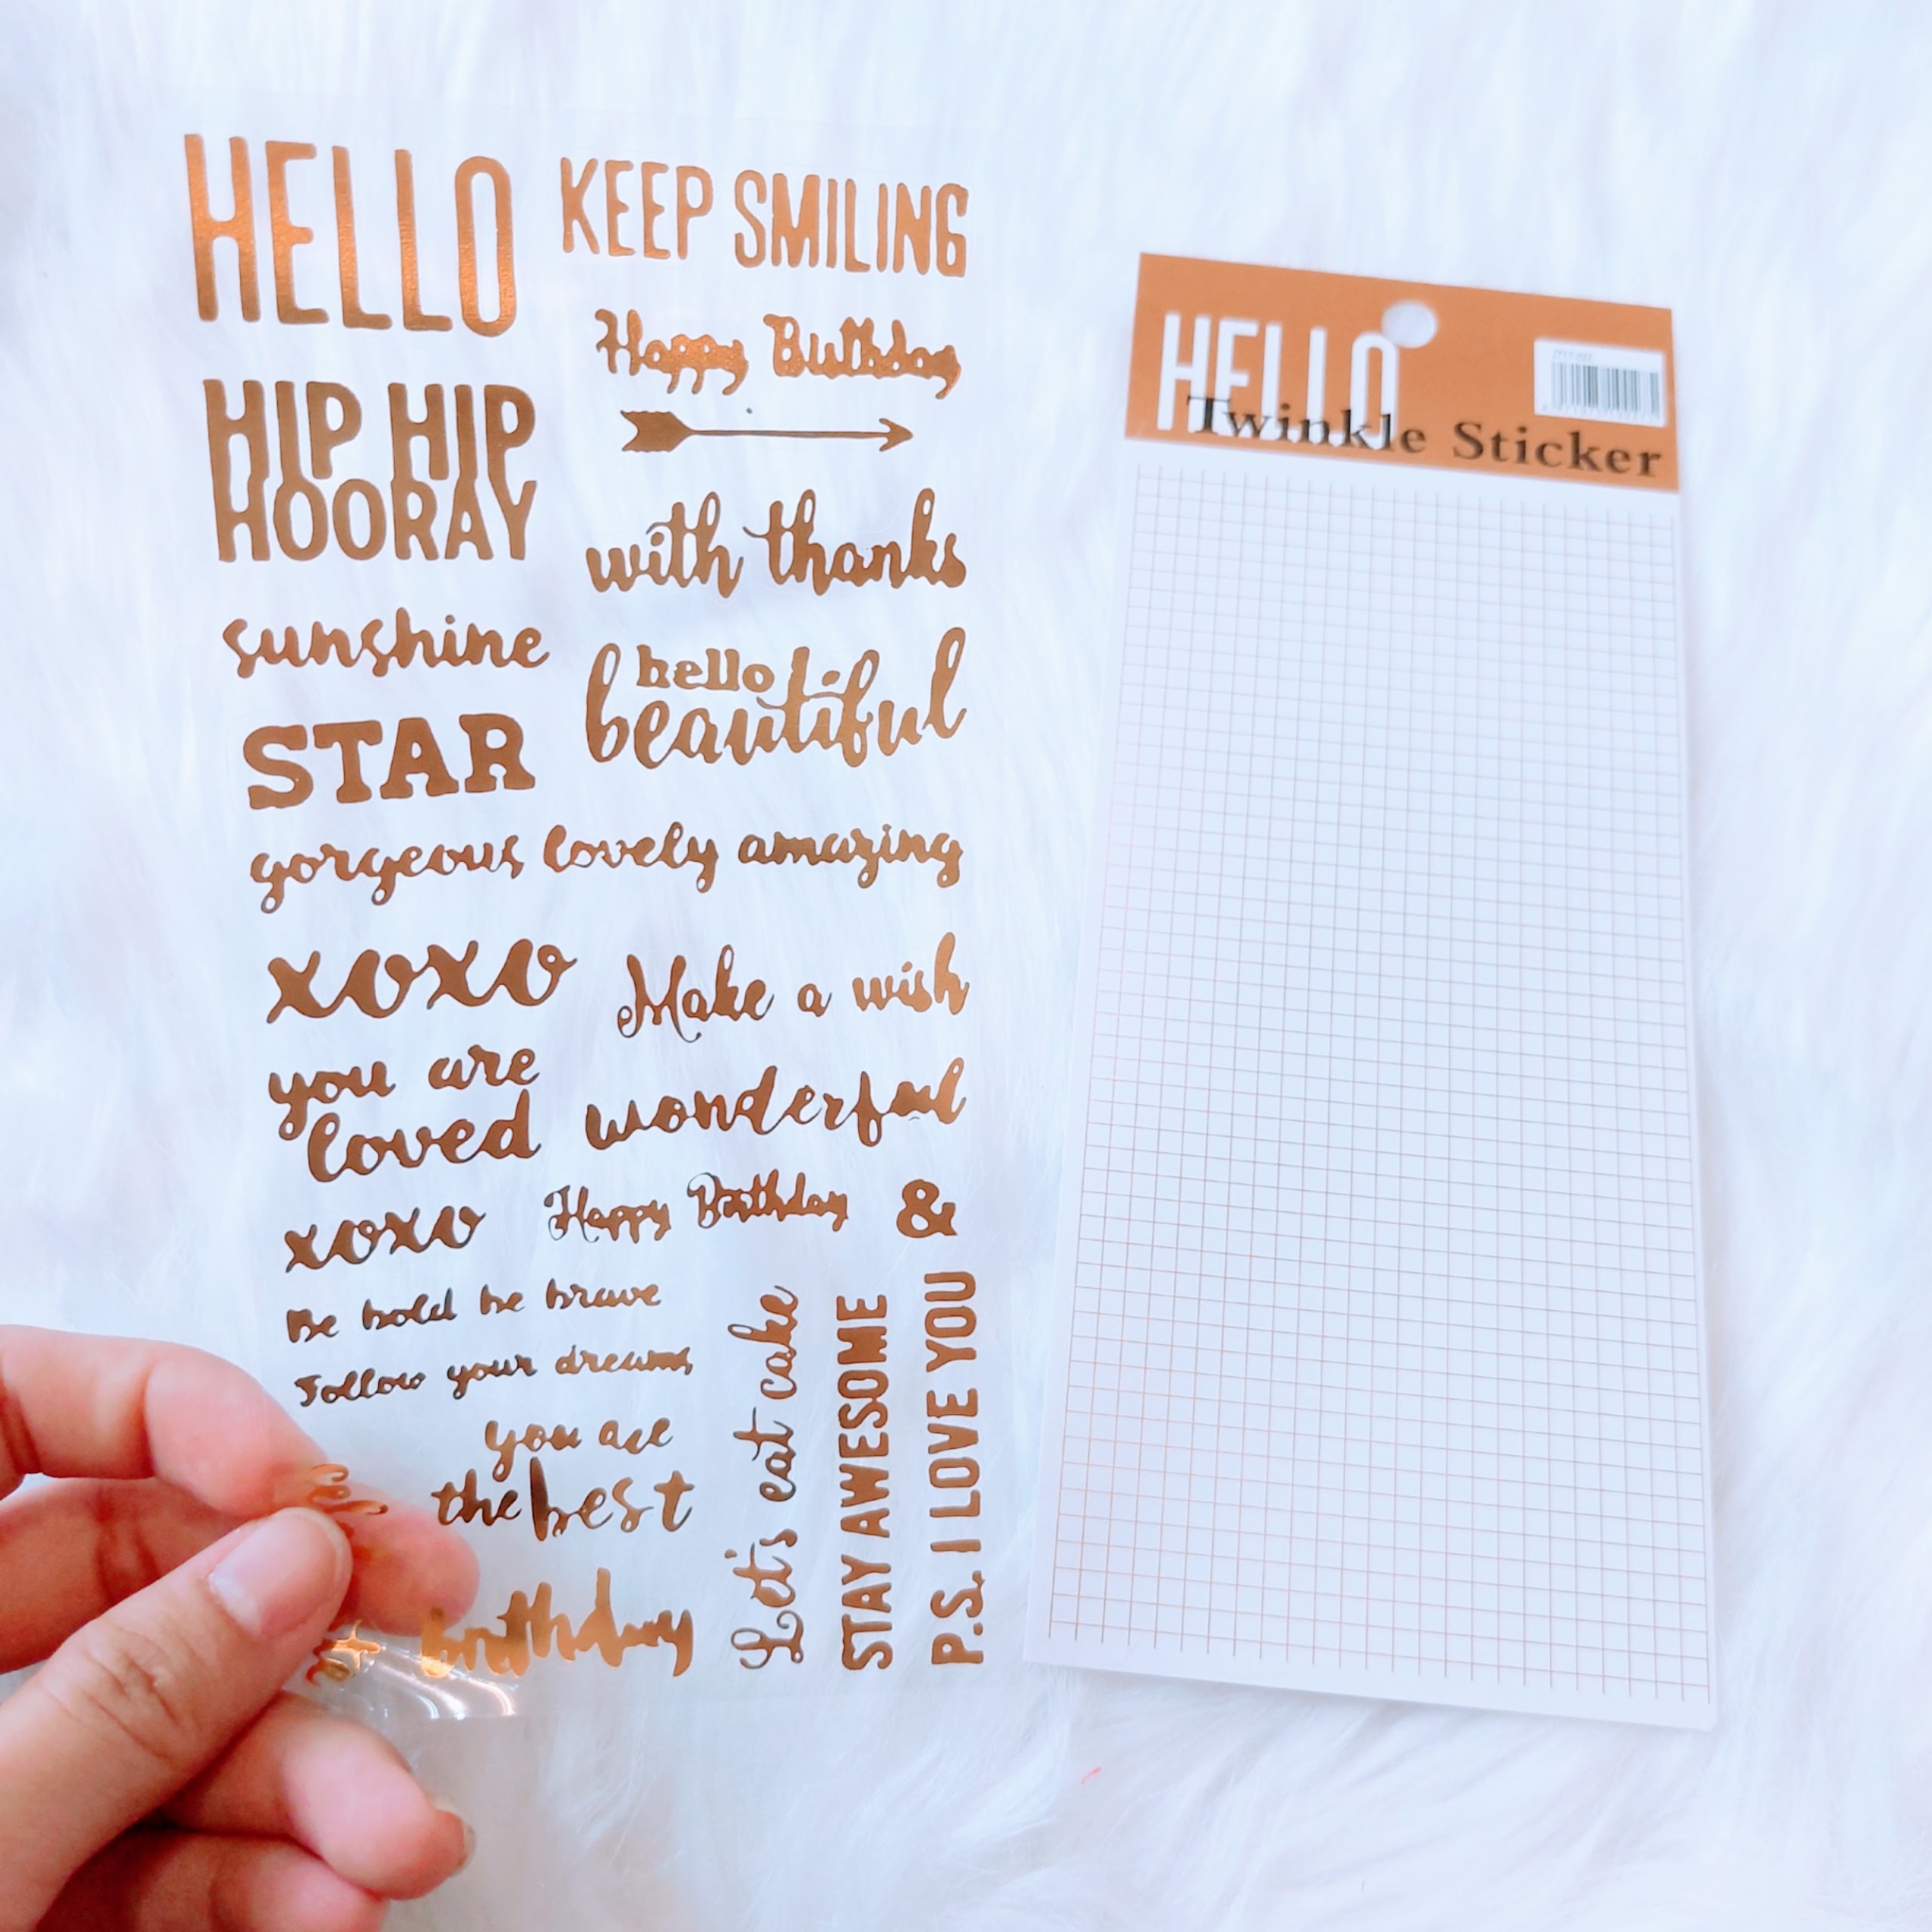 HELLO
KEEP SMILING
Happy Birthday
HIP HIP
HOORAY
with thanks
sunshine
hello
beautiful
STAR
gorgeous lovely amazing
xoxo
Make a wish
you are
loved
wonderful
xoxo
Happy Birthday
&
Be bold be brave
Follow your dreams
you are
the best
birthday
Let's eat cake
STAY AWESOME
P.S. I LOVE YOU
HELLO
Twinkle Sticker